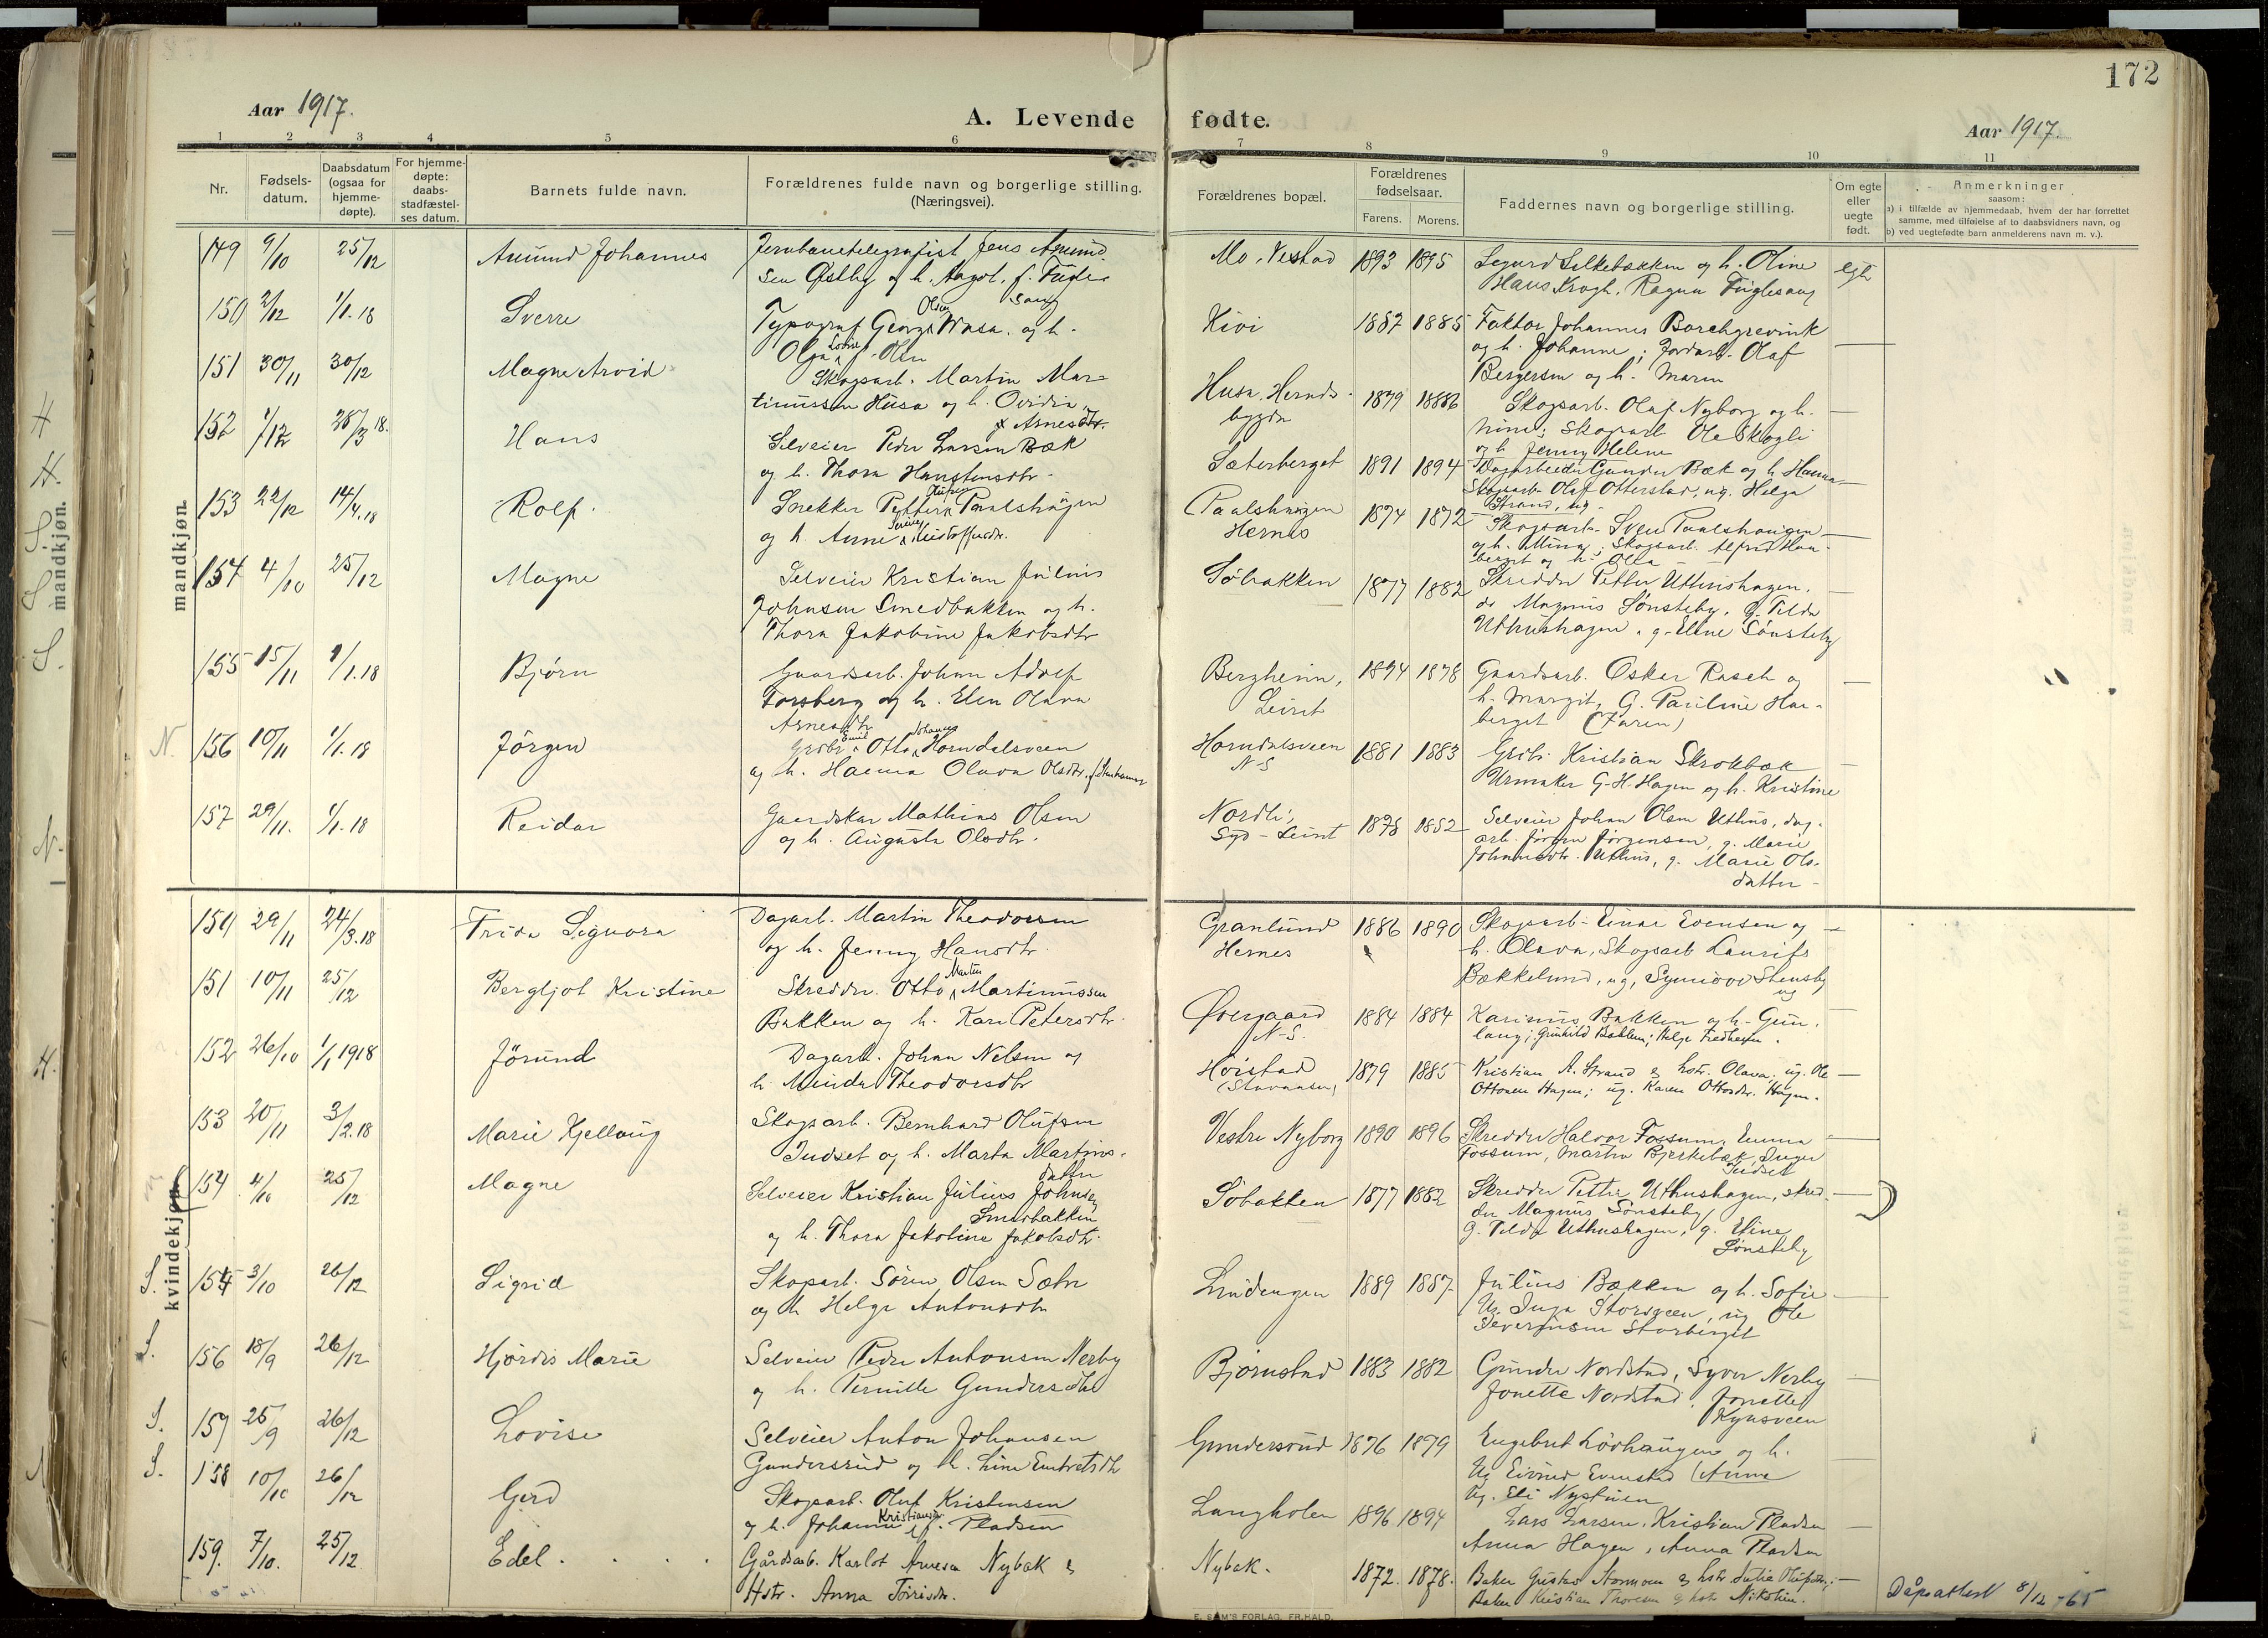 172
Aar 1917.
A. Levende fødte.
Aar 1917.
1 2 3 4 5 6 7 8 9 10 11
Nr.
Fødsels-
datum.
Daabsdatum
(ogsaa for
hjemme-
døpte).
For hjemme-
døpte:
daabs-
stadfæstel-
ses datum.
Barnets fulde navn.
Forældrenes fulde navn og borgerlige stilling.
(Næringsvei).
Forældrenes bopæl.
Forældrenes
fødselsaar.
Farens. Morens.
Faddernes navn og borgerlige stilling.
Om egte
eller
uegte
født.
Anmerkninger
saasom:
a) i tilfælde av hjemmedaab, hvem der har forrettet
samme, med tilføielse af to daabsvidners navn, og
b) ved uegtefødte barn anmelderens navn m. v.).
mandkjøn.
149 9/10 25/12 Amund Johannes
Jernbanetelegrafist Jens Amund-
sen Østby og h. Aagot, f. Fugle-
sang
Mo, Vestad 1893 1895
Sigurd Silkebækken og h. Oline
Hans Krogh, Ragna Fuglesang
egte
150 2/12 1/1.18 Sverre
Typograf Georg Olsen Wasa. og h.
Olga Lovise f. Olsen
Kivi 1887 1885
Faktor Johannes Borchgrevink
og h. Johanne; Jordarb. Olaf
Bergersen og h. Maren
151 30/11 30/12 Magne Arvid
Skogsarb. Martin Mar-
tinussen Husa og h. Ovidia
Asnesdtr.
Husa, Hernds-
bygda 1879 1886
Skogsarb. Olaf Nyborg og h.
Nina; Skogsarb. Ole Skogli
og h. Jenny Helene
152 1/12 28/3 18. Hans
Selveier Peder Larsen Bæk
og h. Thora Hanstensdtr.
Sæterberget 1891 1894
Dagarbeider Gunder Bæk og h. Hanna
Skogsarb. Olaf Otterstad, ug. Helga
Strand, ug.
153 22/12 14/4.18 Rolf.
Snekker Petter Olufsen Paalshaugen
og h. Anne Serine Kristoffersdtr.
Paalshaugen
Hernes 1874 1872
Skogsarb. Sven Paalshaugen
og h. Mina; Skogsarb. Alfred Haa-
berget og h. Olla
154 4/10 25/12 Magne
Selveier Kristian Julius
Johnsen Smedbakken og h.
Thora Jakobine Jakobsdtr
Søbakken 1877 1882
Skredder Petter Uthushagen,
do Magnus Sønsteby, g. Tilda
Uthushagen, g. Eline Sønsteby
155 15/11 1/1.18 Bjørn
Gaardsarb. Johan Adolf
Forsberg og h. Elen Olava
Asnesdtr
Bergheim,
Leiret 1894 1878
Gaardsarb. Oskar Rasch og
h. Margit, G. Pauline Haa-
berget (Faren)
N. 156 10/11 1/1.18 Jörgen
Grdbr. Emil Otto Johannes Horndalsveen
og h. Hanna Olava Olsdtr.
Horndalsveen
N-S 1881 1883
Grdb. Kristian Skrokbæk
Urmaker G. H. Hagen og h. Kristine
157 29/11. 1/1.18 Reidar
Gaardskar Mathias Olsen
og h. Augusta Olsdtr.
Nordli,
Syd-Leiret 1878 1882
Selveier Johan Olsen Uthus, dag-
arb. Jørgen Jørgensen, g. Marie
Johannesdtr. Uthus, g. Marie Ols-
datter
kvindekjøn.
150 29/11 24/3.18 Frida Signora
Dagarb. Martin Theodorsen
og h. Jenny Hansdtr.
Granlund
Hernes 1886 1890
Skogsarb. Einar Evensen og
h. Olava, Skogsarb Laurits
Bækkelund, ug, Synnöve Stensby
ug
151 10/11 25/12 Bergljot Kristine
Skredder. Otto Martin Martinussen
Bakken og h. Kari Petersdtr.
Övergaard
N-S. 1884 1884
Karinus Bakken og h. Gun-
laug; Gunhild Bakken; Helge Fredheim.
152 26/10 1/1 1918 Jörund
Dagarb. Johan Nelsen og
h. Minda Theodorsdtr
Höistad
1879 1885
Kristian A. Strand og hstr. Olava; ug. Ole
Ottosen Hagen; ug. Karen Ottosdtr. Hagen.
153 20/11 3/2.18 Marie Kjellaug
Skogsarb. Bernhard Olufsen
Indset og h. Marta Martins-
datter
Vestre Nyborg 1890 1896
Skredder Halvor Fossum, Emma
Fossum, Martin Bjerkebæk, Inger
Indset
154 4/10 25/12 Magne
Selveier Kristian Julius Johnsen
Smedbakken
og h. Thora Jakobine Jakobsdtr.
Söbakken 1877 1882
Skredder Petter Uthushagen, skred-
der Magnus Sønsteby,
g. Tilda Uthushagen, g. Eline
Sønsteby
S. 155 3/10 26/12 Sigrid
Skogsarb. Sören Olsen Sætre
og h Helga Antonsdtr
Lindengen 1889 1887
Julius Bakken og h. Sofie
Ug. Inga Storsveen, ug Ole
Severinsen Storberget
S. 156 18/9 26/12 Hjördis Marie
Selveier Peder Antonsen Nerby
og h. Pernille Gundersdtr
Björnstad 1883 1882
Gunder Nordstad, Syver Nerby
Jonette Nordstad, Jonette
Kynsveen
S. 157 25/9 26/12 Lovise
Selveier Anton Johansen
Gundersrud og h. Lina Embretsdtr
Gundersrud 1876 1879
Engebret Lövhaugen og h.
Ug Eivind Evenstad (Anna
Ug. Eli Nystuen
S. 158 10/10 26/12 Gerd
Skogsarb. Oluf Kristensen
og h. Johanne Kristiansdtr f. Pladsen
Langholen 1896 1894
Lars Larsen, Kristian Pladsen
Anna Hagen, Anna Pladsen
159. 7/10. 25/12 Edel.
Gårdsarb. Karlot Arnesen Nybak &
Hstr. Anna Törrisdtr.
Nybak. 1872. 1878.
Baker Gustav Stormoen & hstr Julie Olufsdtr.;
Baker Kristian Thoresen & hstr
Dåpsattest 8/12-65
E. SEM'S FORLAG, FR.HALD.